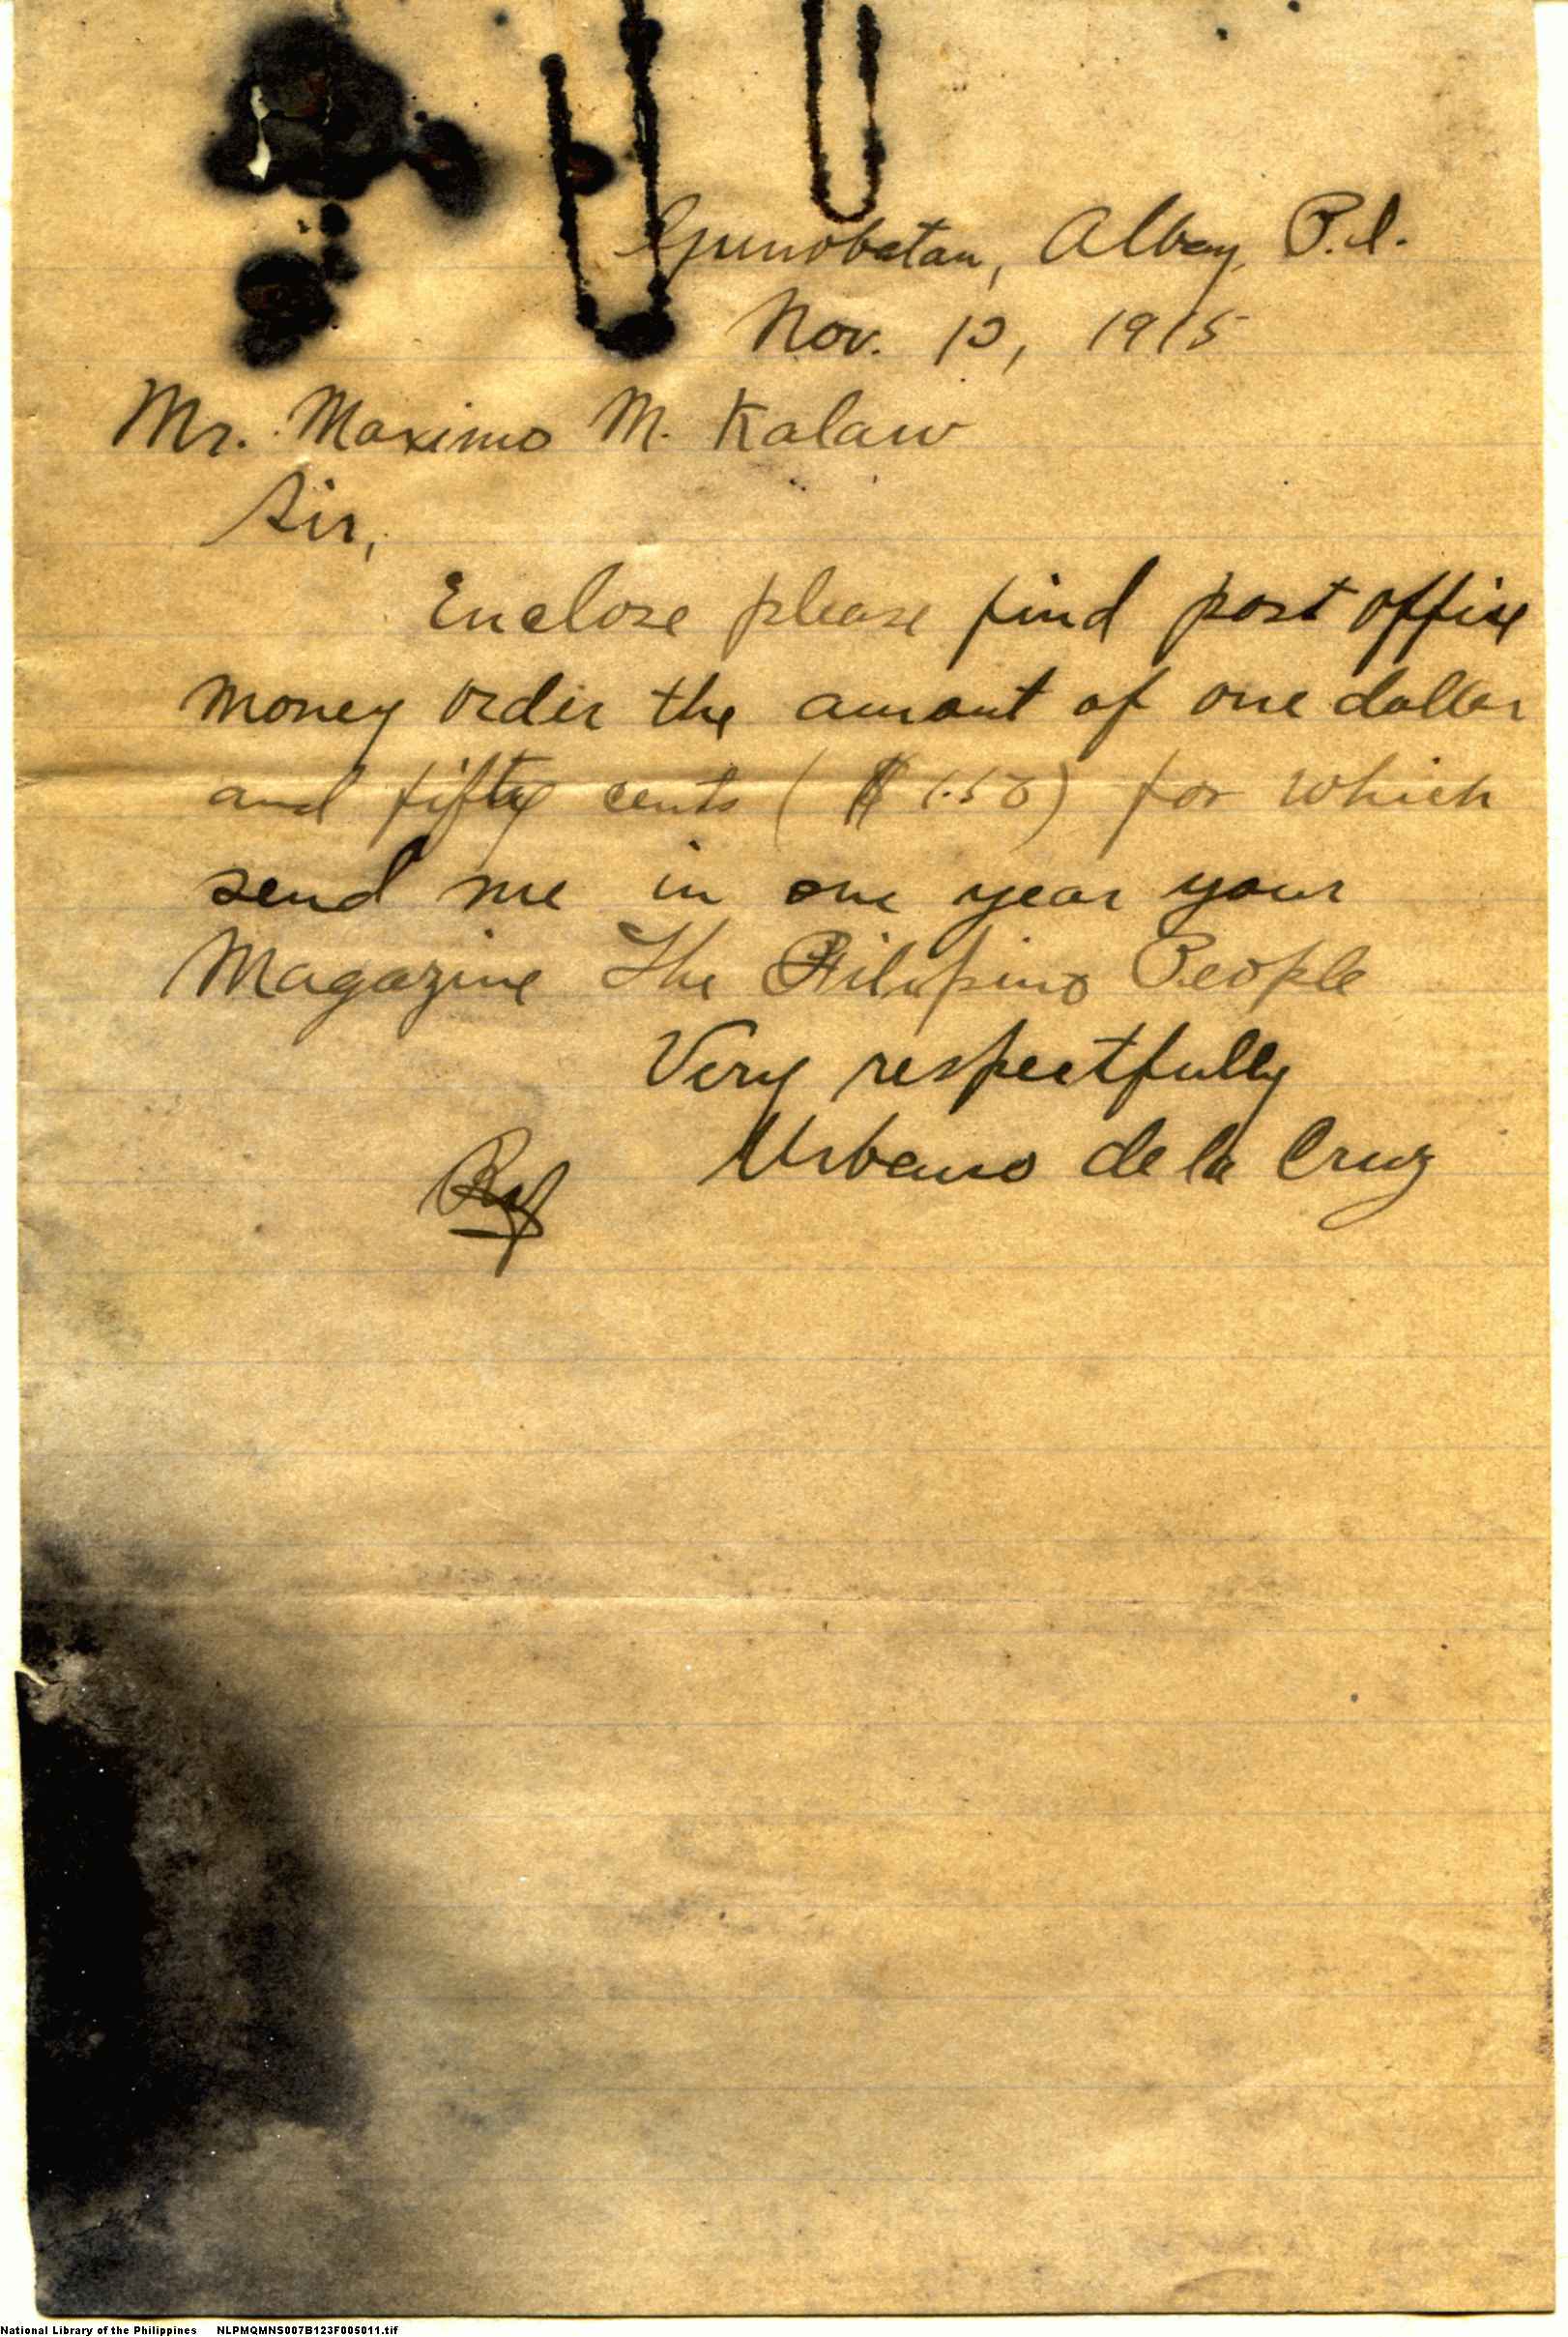 Guinobatan, Albay, P.I.
Nov. 10, 1915
Mr. Maximo M. Kalaw
Sir,
Enclose please find post office
money order the amout of one dollar
and fifty cents ( $ 1.50) for which
send me in one year your
Magazine The Filipino People
Very respectfully
Urbano de la Cruz
National Library of the Philippines NLPMQMNS007B123F005011.tif